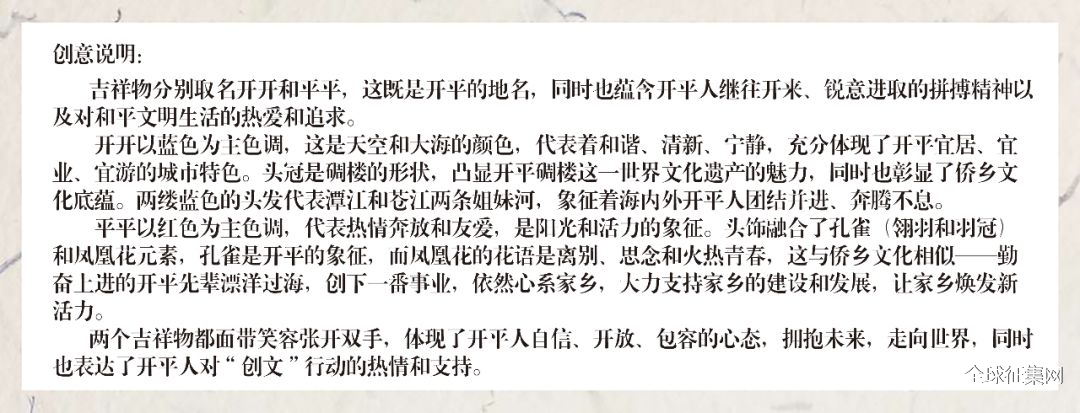 创意说明：
吉祥物分别取名开开和平平，这既是开平的地名，同时也蕴含开平人继往开来、锐意进取的拼搏精神以
及对和平文明生活的热爱和追求。
开开以蓝色为主色调，这是天空和大海的颜色，代表着和谐、清新、宁静，充分体现了开平宜居、宜
业、宜游的城市特色。头冠是碉楼的形状，凸显开平碉楼这一世界文化遗产的魅力，同时也彰显了侨乡文
化底蕴。两缕蓝色的头发代表潭江和苍江两条姐妹河，象征着海内外开平人团结并进、奔腾不息。
平平以红色为主色调，代表热情奔放和友爱，是阳光和活力的象征。头饰融合了孔雀（翎羽和羽冠）
和凤凰花元素，孔雀是开平的象征，而凤凰花的花语是离别、思念和火热青春，这与侨乡文化相似——勤
奋上进的开平先辈漂洋过海，创下一番事业，依然心系家乡，大力支持家乡的建设和发展，让家乡焕发新
活力。
两个吉祥物都面带笑容张开双手，体现了开平人自信、开放、包容的心态，拥抱未来，走向世界，同时
也表达了开平人对“创文”行动的热情和支持。
全球征集网